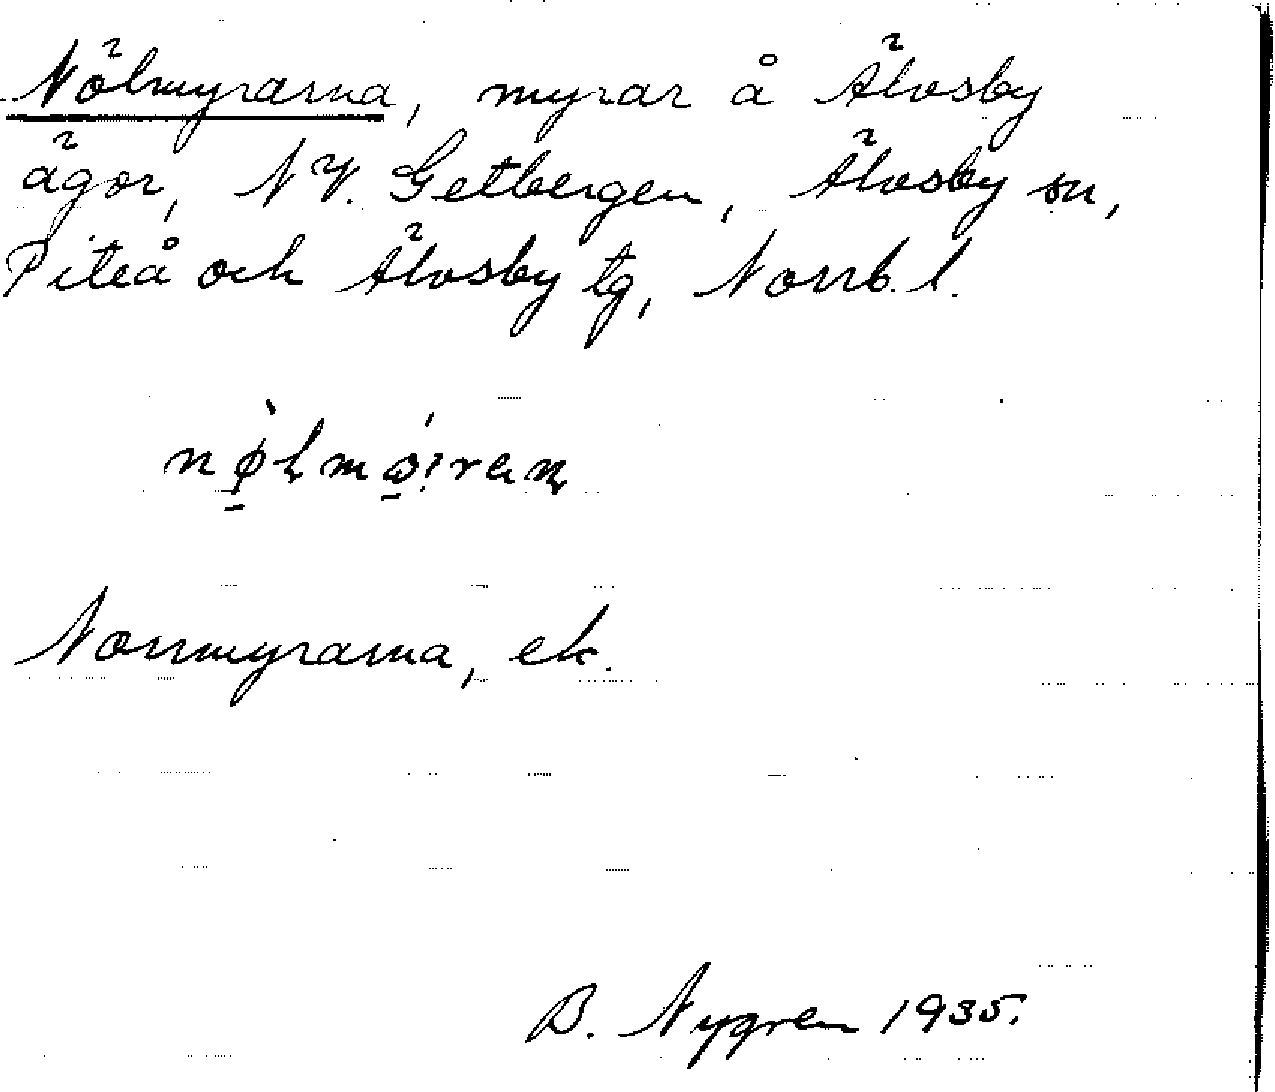 Nölmyrarna, myrar å Älvsby
ägor, NV. Getbergen, Älvsby sn,
Piteå och Älvsby tg, Norrb. l.
Norrmyrarna, ek.
B. Nygren 1935.